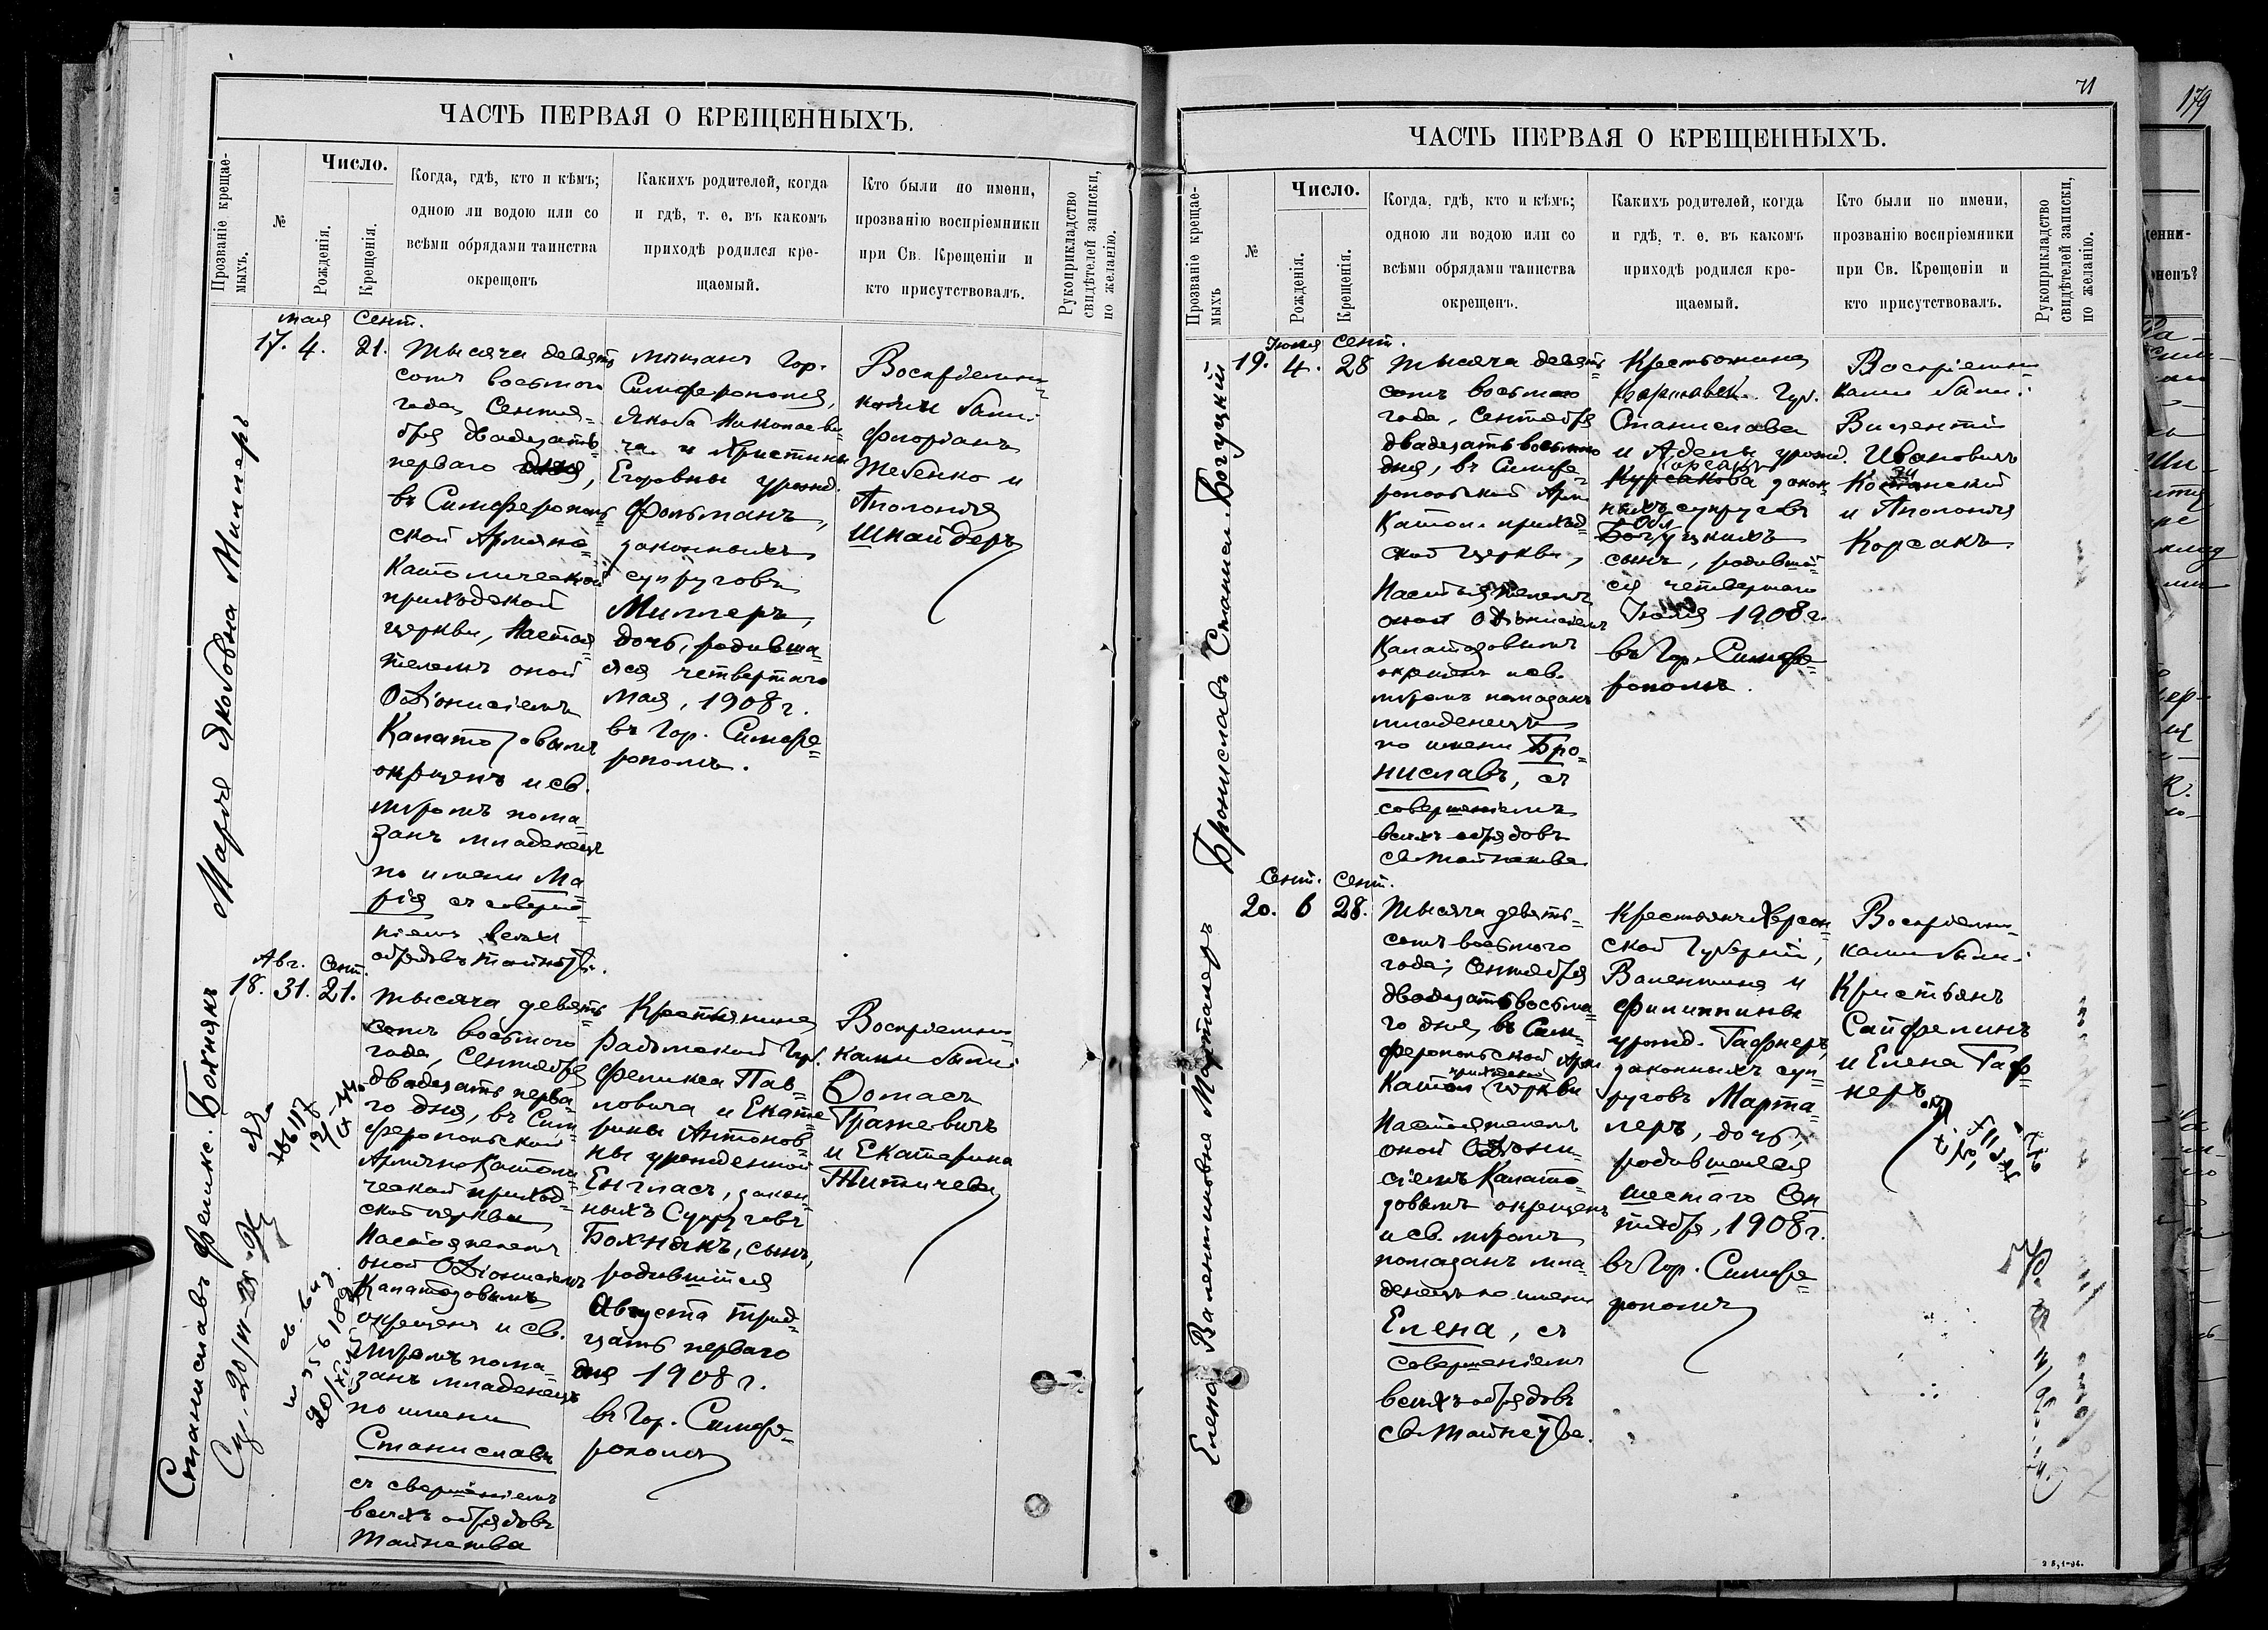 ЧАСТЬ ПЕРВАЯ О КРЕЩЕННЫХЪ.
Прозваніе крещае-
мыхъ.
№
Число.
Рожденія.
Крещенія.
Когда, гдѣ, кто и кѣмъ;
одною ли водою или со
всѣми обрядами таинства
окрещенъ
Какихъ родителей, когда
и гдѣ, т. е. въ какомъ
приходѣ родился кре-
щаемый.
Кто были по имени,
прозванію воспріемники
при Св. Крещеніи и
кто присутствовалъ.
Рукоприкладство
свидѣтелей записки,
по желанію.
Марія Якобовна Миллеръ
мая Сент.
17. 4. 21.
Тысяча девять
сотъ восьмого
года, Сентя-
бря двадцать
перваго дня,
въ Симферополь
ской Армяно-
Католической
приходской
церкви, Настоя-
телемъ оной
О. Діонисіемъ
Калатозовымъ
окрещенъ и св.
мѵромъ пома-
занъ младенецъ
по имени Ма-
рія съ соверше-
ніемъ всѣхъ
обрядовъ
мѣщанъ Гор.
Симферополя,
Якова Николаеви-
ча и Христины
Егоровны урожд.
Фольманъ,
законныхъ
супруговъ
Миллеръ,
дочь, родивша-
яся четвертаго
мая, 1908 г.
въ Гор. Симфе-
рополѣ.
Воспріемни-
ками были:
Флоріанъ
Жебенко и
Аполонія
Шнайдеръ
Станиславъ Феликс. Бохнякъ
Авг. Сент.
18. 31. 21.
Тысяча девять
сотъ восьмого
года, Сентября
двадцать перва-
го дня, въ Сим-
феропольской
Армяно Католи-
ческой приход-
ской церкви
Настоятелемъ
оной О. Діонисіемъ
Калатозовымъ
окрещенъ и св.
мѵромъ пома-
занъ младенецъ
по имени
Станиславъ
съ свершеніемъ
всѣхъ обрядовъ
Таинства
Крестьянина
Радомской Губ.
Феликса Пав-
ловича и Екате-
рины Антонов-
ны урожденной
Енгласъ, закон-
ныхъ Супруговъ
Бохнякъ, сынъ,
родившійся
Августа трид-
цать перваго
дня 1908 г.
въ Гор. Симфе-
рополѣ
Воспріемни-
ками были:
Ѳомасъ
Гражевичъ
и Екатерина
Титичева
71
ЧАСТЬ ПЕРВАЯ О КРЕЩЕННЫХЪ.
Прозваніе крещае-
мыхъ
№
Число.
Рожденія.
Крещенія.
Когда, гдѣ, кто и кѣмъ;
одною ли водою или со
всѣми обрядами таинства
окрещенъ.
Какихъ родителей, когда
и гдѣ, т. е. въ какомъ
приходѣ родился кре-
щаемый.
Кто были по имени,
прозванію воспріемники
при Св. Крещеніи и
кто присутствовалъ.
Рукоприкладство
свидѣтелей записки,
по желанію.
Брониславъ Станисл. Богуцкій
Сент.
19. 4. 28
Тысяча девять-
сотъ восьмого
года, Сентября
двадцать восьмого
дня, въ Симфе-
ропольской Арм.
Катол. приход-
ской церкви,
Настоятелемъ
оной О. Діонисіемъ
Калатозовымъ
окрещенъ и св.
мѵромъ помазанъ
младенецъ
по имени Бро-
ниславъ, съ
совершеніемъ
всѣхъ обрядовъ
св. Таинства
Крестьянина
Варшавск. Губ.
Станислава
и Адели урожд.
Курсакова закон-
ныхъ супруговъ
Богуцкихъ
сынъ, родивші-
ся четвертаго
1908 г.
въ Гор. Симфе-
рополѣ.
Воспріемни-
ками были:
Викентій
Ивановичъ
и Аполонія
Корсакъ.
Елена Валентиновна Марталеръ
Сент. Сент.
20. 6 28.
Тысяча девять-
сотъ восьмого
года, Сентября
двадцать восьма-
го дня, въ Сим-
феропольской Арм.
Катол приходской церкви
Настоятелемъ
оной О. Діони-
сіемъ Калато-
зовымъ окрещенъ
и св. мѵромъ
помазанъ мла-
денецъ по имени
Елена, съ
совершеніемъ
всѣхъ обрядовъ
св. Таинства.
Крестьянъ Херсон-
ской Губерніи,
Валентина и
Филиппины
урожд. Гафнеръ,
законныхъ суп-
руговъ Марта-
леръ, дочь,
родившаяся
шестаго Сен
тября, 1908 г.
въ Гор. Симфе-
рополѣ
Воспріемни-
ками были:
Кристьянъ
Сайфелинъ
и Елена Гаф-
неръ
179